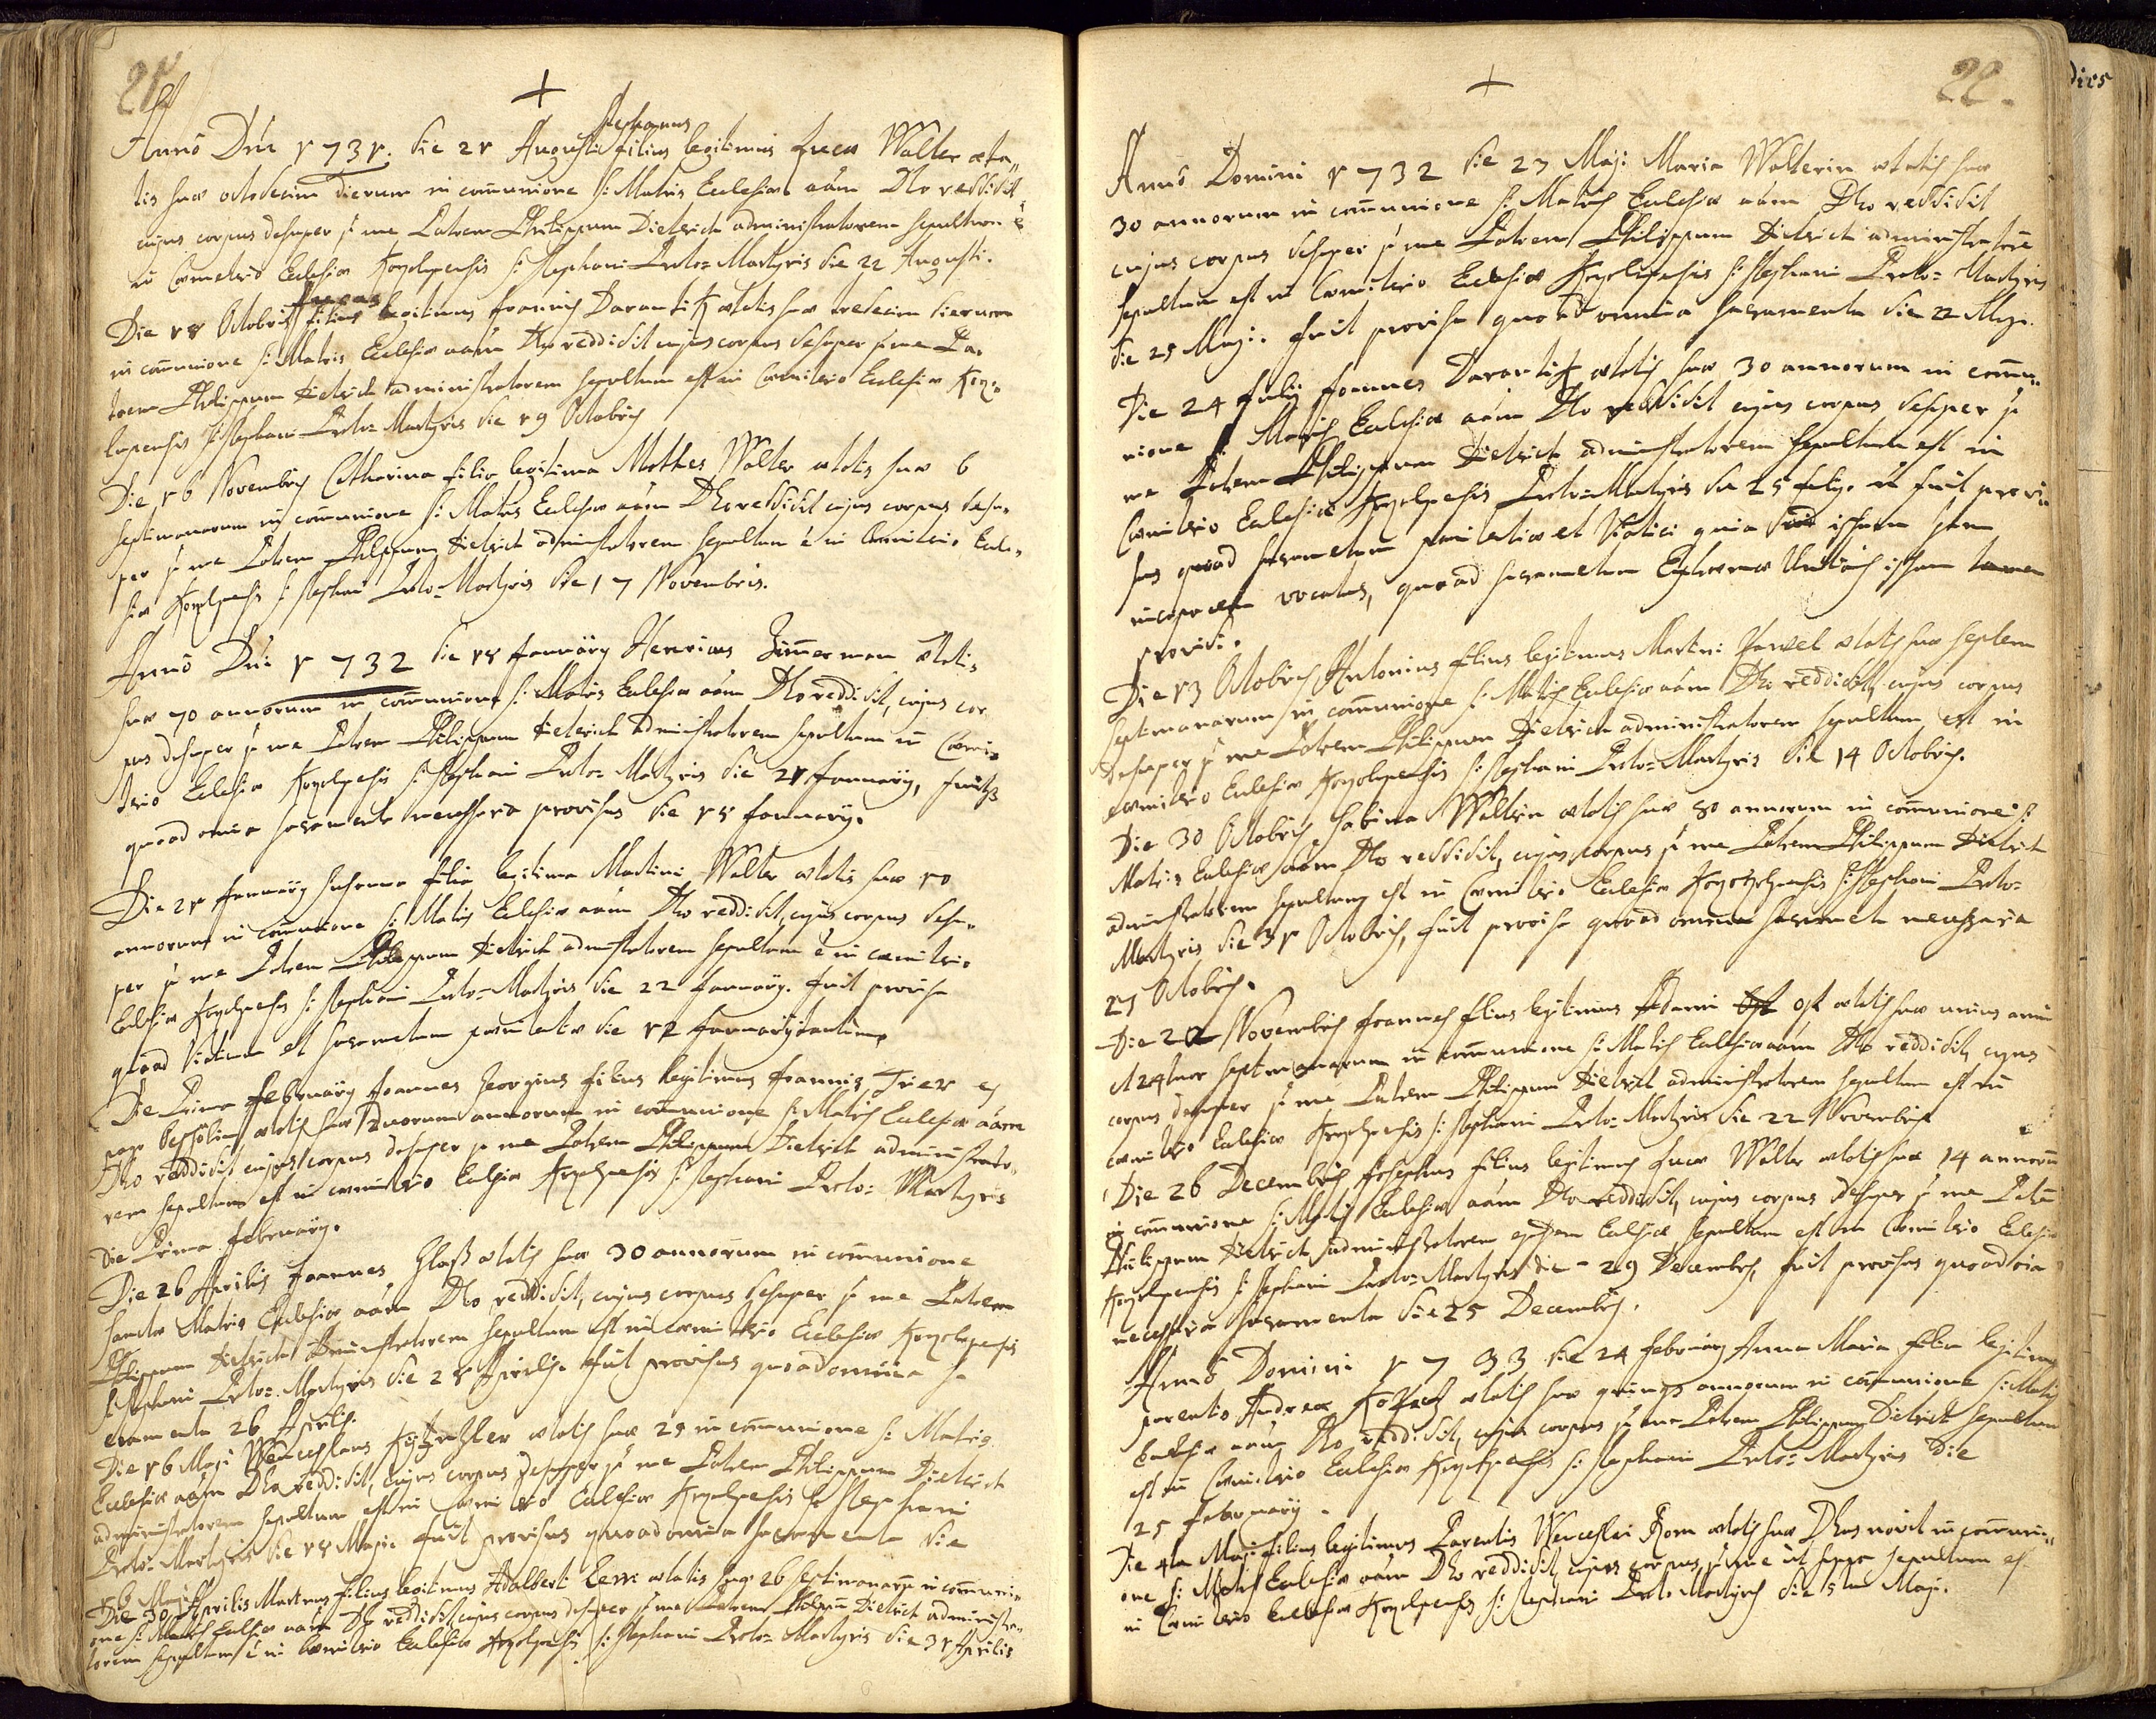 21
Stephanus
Anno Dni 1731. die 21 Augusti filius legitimus Lucæ Walter æta„
tis suæ octodecim dierum in com̄unione S: Matris Ecclesiæ aām Deo reddidit
cujus corpus desuper p me Patrem Philippum Dietrich administratorem sepultum ē
in Cœmeterio Ecclesiæ Kozolupensis S: Stephani Proto=Martyris die 22 Augusti.
Lucas
Die 18 Octobris filius legitimus Joannis Darantik ætatis suæ tredecim dierum
in com̄unione S: Matris Ecclesiæ aām Deo reddidit cujus corpus desuper p me Pa„
trem Philippum Dietrich administratorem sepultum est in Cœmiterio Ecclesiæ Kozo„
lupensis S: Stephani Proto=Martyris die 19 Octobris
Die 16 Novembris Catharina filia legitima Mathes Walter ætatis suæ 6
septimanarum in com̄unione S: Matris Ecclesiæ aām Deo reddidit cujus corpus desu„
per p me Patrem Philippum Dietrich administratorem sepultum ē in Cœmiterio Eccle„
siæ Kozolupensis S: Stephani Proto=Martyris die 17 Novembris.
Anno Dni 1732 die 18 Januarij Henricus Zim̄erman ætatis
suæ 70 annorum in com̄unione S: Matris Ecclesiæ aām Deo reddidit, cujus cor
pus desuper p me Patrem Philippum Dietrich administratorem sepultum in Cœmi„
terio Ecclesiæ Kozolupensis S: Stephani Proto=Martyris die 21 Januarij, fuitq
quoad omnia sacramenta necessaria provisus die 15 Januarij.
Die 21 Januarij Susanna filia legitima Martini Walter ætatis suæ 10
annorum in com̄unione S: Matris Ecclesiæ aām Deo reddidit, cujus corpus desu„
per p me Patrem Philippum Dietrich administratorem sepultum ē in cœmiterio
Ecclesiæ Kozolupensis S: Stephani Proto=Martyris die 22 Januarij. fuit provisa
quoad viaticum et sacramentum pœnitentiæ die 12 Januarij tantum
Die Prima February Joannes Georgius filius legitimus Joannis Trier ex
pago ætatis suæ duorum annorum in com̄unione S: Matris Ecclesiæ aām
Deo reddidit cujus corpus desuper p me Patrem Philippum Dietrich administrato„
rem sepultum est in cœmiterio Ecclesiæ Kozolupensis S: Stephani Proto=Martyris
die Prima February.
Die 26 Aprilis Joannes Glaß ætatis suæ 30 annorum in com̄unione
Sanctæ Matris Ecclesiæ aām Deo reddidit, cujus corpus desuper p me Patrem
Philippum Dietrich administratorem sepultum est in cœmiterio Ecclesiæ Kozolupensis
S: Stephani Proto=Martyris die 28 Aprilis. fuit provisus quoad omnia sa
cramenta 26 Aprilis.
Die 16 Maji Wenceslaus ætatis suæ 29 in com̄unione S: Matris
Ecclesiæ aām Deo reddidit, cujus corpus desuper p me Patrem Philippum Dietrich
administratorem sepultum est in cœmiterio Ecclesiæ Kozolupensis S: Stephani
Proto=Martyris die 18 Maji. fuit provisus quoad omnia sacramenta die
16 Maji.
Die 30 Aprilis Martinus filius legitimus Adalberti ætatis suæ 26 septimanarū in com̄uni„
one S: Matris Ecclesiæ aām Deo reddidit, cujus corpus desuper p me Patrem Philippū Dietrich administra„
torem sepultum ē in Cœmiterio Ecclesiæ Kozolupensis S: Stephani Proto=Martyris die 31 Aprilis
22.
Anno Domini 1732 die 23 Maji Maria Walterin ætatis suæ
30 annorum in com̄unione S: Matris Ecclesiæ aām Deo reddidit
cujus corpus desuper p me Patrem Philippum Dietrich administratorē
sepultum est in Cœmiterio Ecclesiæ Kozolupensis S: Stephani Proto=Martyris
die 25 Maji. fuit provisa quoad omnia sacramenta die 22 Maji.
Die 24 Julij Joannes Darantik ætatis suæ 30 annorum in com̄u„
nione S: Matris Ecclesiæ aām Deo reddidit cujus corpus desuper p
me Patrem Philippum Dietrich administratorem sepultum est in
Cœmiterio Ecclesiæ Kozolupensis Proto=Martyris die 25 July. n fuit provi„
sus quoad sacramentum pœnitentiæ et Viatici quia ipsum jam
incapacem vocatus, quoad sacramentum Extremæ Unctionis ipsum tamen
providi.
Die 13 Octobris Antonius filius legitimus Martini Pawel ætatis suæ septem
septimanarum in com̄unione S: Matris Ecclesiæ aām Deo reddidit, cujus corpus
desuper p me Patrem Philippum Dietrich administratorem sepultum est in
cœmiterio Ecclesiæ Kozolupensis S: Stephani Proto=Martyris die 14 Octobris.
Die 30 Octobris Sabina Walterin ætatis suæ 80 annorum in com̄unione S:
Matris Ecclesiæ aām Deo reddidit, cujus corpus p me Patrem Philippum Dietrich
administratorem sepultum est in Cœmiterio Ecclesiæ Kozolupensis S: Stephani Proto=
Martyris die 31 Octobris, fuit provisa quoad omnia sacramenta necessaria
27 Octobris.
Die 22 Novembris Joannes filius legitimus Adami Ost ætatis suæ unius anni
et 24tuor septimanarum in com̄unione S: Matris Ecclesiæ aām Deo reddidit, cujus
corpus desuper p me Patrem Philippum Dietrich administratorem sepultum est in
cœmiterio Ecclesiæ Kozolupensis S: Stephani Proto=Martyris die 22 Novembris
Die 26 Decembris Josephus filius legitimus Lucæ Walter ætatis suæ 14 annorū
in com̄unione S: Matris Ecclesiæ aām Deo reddidit, cujus corpus desuper p me Patrē
Philippum Dietrich administratorem ejusdem Ecclesiæ sepultum est in Cœmiterio Ecclesiæ
Kozolupensis S: Stephani Proto=Martyris die 29 Decembris, fuit provisus quoad oia
necessaria sacramenta die 25 Decembris.
Anno Domini 1733 die 24 February Anna Maria filia legitima
parentis Andreæ ætatis suæ quinq annorum in com̄unione S: Matris
Ecclesiæ aām Deo reddidit, cujus corpus p me Patrem Philippum Dietrich sepultum
est in Cœmiterio Ecclesiæ Kozolupensis S: Stephani Proto=Martyris die
25 February.
Die 4ta Maji filius legitimus Parentis Wenceslai Korn ætatis suæ Deus novit in com̄uni„
one S: Matris Ecclesiæ aām Deo reddidit, cujus corpus p me ut supra sepultum est
in Cœmiterio Ecclesiæ Kozolupensis S: Stephani Proto Martyris die 5ta Maji.